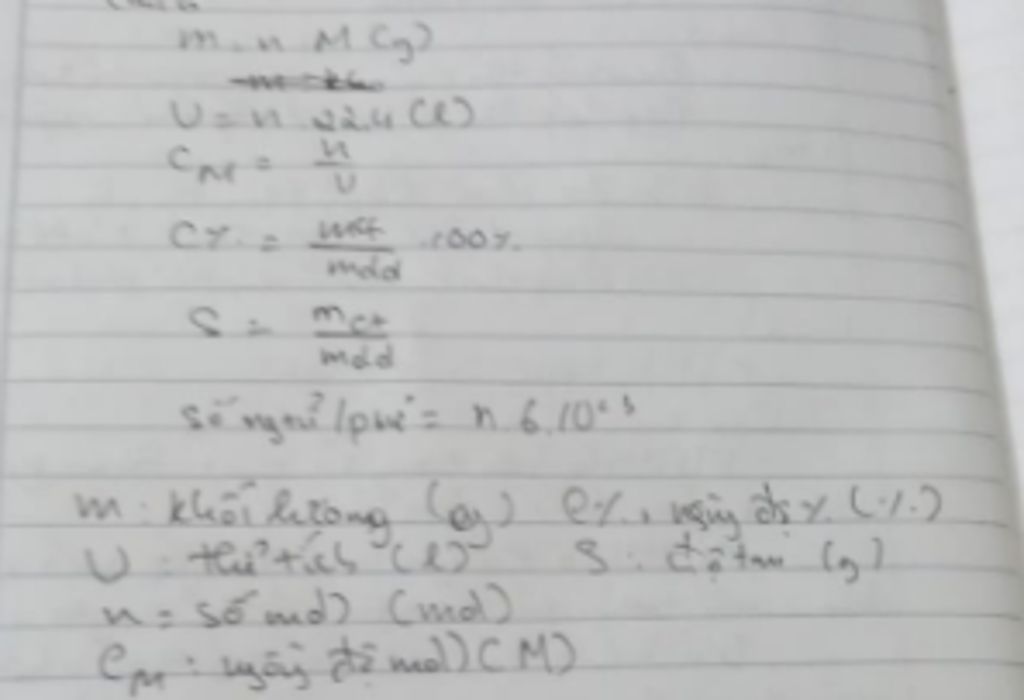 m = n M (g)
V = n 22.4 (l)
CM = n / V
C% = mct / mdd . 100%
S = mct / mdd
số ngtử / ptử = n . 6 . 10²³
m : khối lượng (g) C% : nồng độ % (%)
V : thể tích (l) S : độ tan (g)
n = số mol (mol)
CM : nồng độ mol (M)